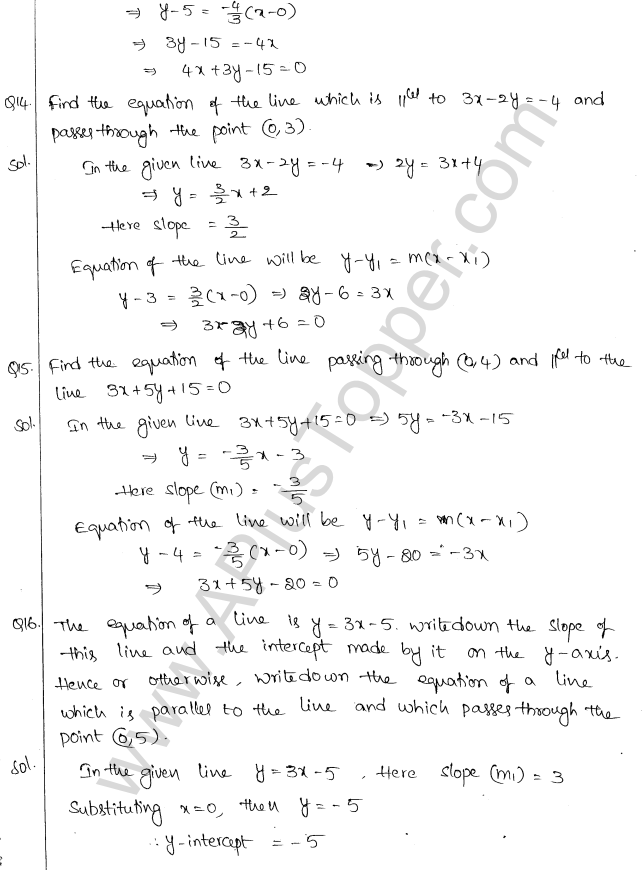 ⇒ y-5 = -4/3 (x-0)
⇒ 3y-15 = -4x
⇒ 4x+3y-15=0
Q14. Find the equation of the line which is ||lel to 3x-2y=-4 and
passes through the point (0,3).
Sol. In the given line 3x-2y=-4 ⇒ 2y= 3x+4
⇒ y= 3/2 x+2
Here slope = 3/2
Equation of the line will be y-y1 = m(x-x1)
y-3 = 3/2 (x-0) ⇒ 2y-6=3x
⇒ 3x-2y+6=0
Q15. Find the equation of the line passing through (0,4) and ||lel to the
line 3x+5y+15=0
Sol. In the given line 3x+5y+15=0 ⇒ 5y= -3x-15
⇒ y= -3/5 x - 3
Here slope (m1) = -3/5
Equation of the line will be y-y1 = m(x-x1)
y-4 = -3/5 (x-0) ⇒ 5y-20 = -3x
⇒ 3x+5y-20=0
Q16. The equation of a line is y=3x-5. write down the slope of
this line and the intercept made by it on the y-axis.
Hence or otherwise, write down the equation of a line
which is parallel to the line and which passes through the
point (0,5).
Sol. In the given line y=3x-5, Here slope (m1) = 3
Substituting x=0, then y=-5
∴ y-intercept = -5
www.APlusTopper.com